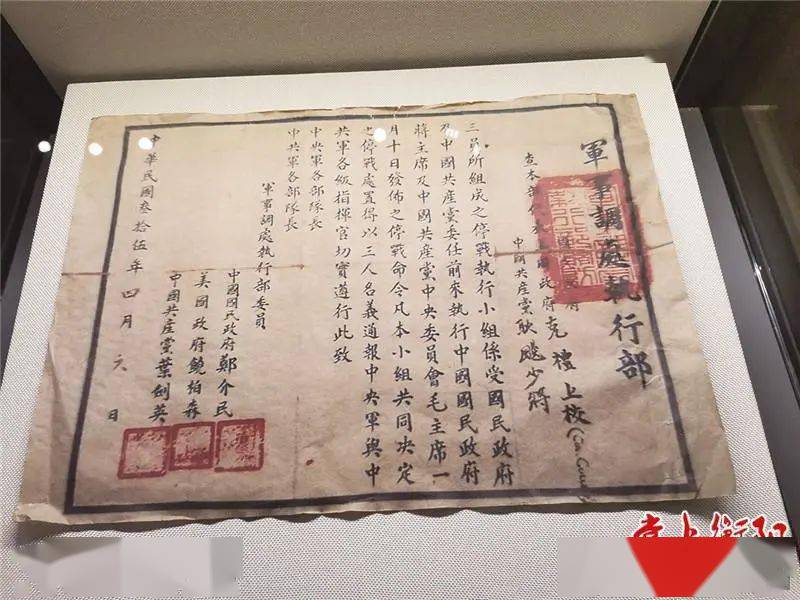 軍事調處執行部
查本部
政府克禮上校
中國共産黨耿飈少將
三員所組成之停戰執行小組係受國民政府
及中國共産黨委任前來執行中國國民政府
蔣主席及中國共産黨中央委員會毛主席一
月十日發佈之停戰命令凡本小組共同決定
之停戰處置得以三人名義通報中央軍與中
共軍各級指揮官切實遵行此致
中央軍各部隊長
中央軍各部隊長
軍事調處執行部委員
中國國民政府鄭介民
美國政府饒柏森
中國共産黨葉劍英
中華民國叁拾伍年四月六日
掌上衡阳